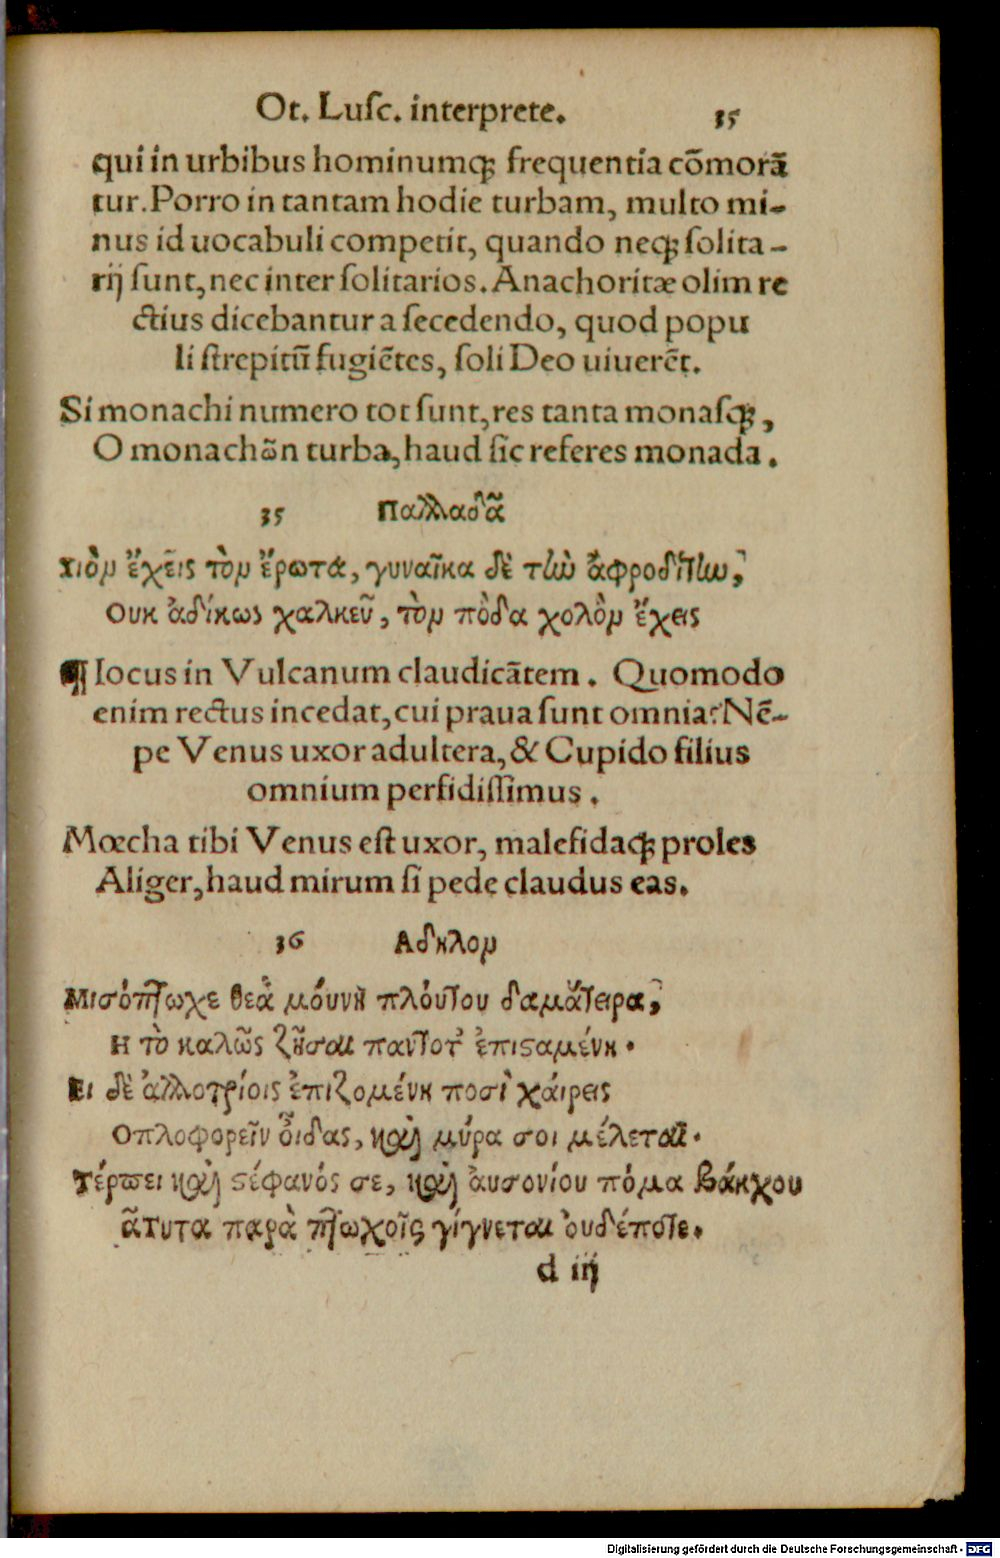 Ot. Lusc. interprete. 35
qui in urbibus hominumq; frequentia cōmorā
tur. Porro in tantam hodie turbam, multo mi-
nus id uocabuli competit, quando neq; solita-
rij sunt, nec inter solitarios. Anachoritæ olim re
ctius dicebantur a secedendo, quod popu
li strepitū fugiētes, soli Deo uiuerēt.
Si monachi numero tot sunt, res tanta monasq;,
O monachῶn turba, haud sic referes monada.
35 Παλλαδᾶ
Υιὸν ἔχεις τὸν ἔρωτα, γυναῖκα δὲ τὴν ἀφροδίτην,
Ουκ ἀδίκως χαλκεῦ, τὸν πόδα χολὸν ἔχεις
¶ Iocus in Vulcanum claudicātem. Quomodo
enim rectus incedat, cui praua sunt omnia? Nē-
pe Venus uxor adultera, & Cupido filius
omnium perfidissimus.
Mœcha tibi Venus est uxor, malefidaq; proles
Aliger, haud mirum si pede claudus eas.
36 Αδηλον
Μισόπτωχε θεὰ μόυνη πλόυτου δαμάτειρα,
Η τὸ καλῶς ζῆσαι παντοτ' ἐπισταμένη.
Ει δὲ ἀλλοτρίοις ἐπιζομένη ποσὶ χάιρεις
Οπλοφορεῖν ὄιδας, καὶ μύρα σοι μέλεται.
Τέρπει καὶ στέφανός σε, καὶ ἀυσονίου πόμα Βάκχου
ἅτυτα παρὰ πτωχοῖς γίγνεται ὀυδέποτε.
d iij
Digitalisierung gefördert durch die Deutsche Forschungsgemeinschaft - DFG